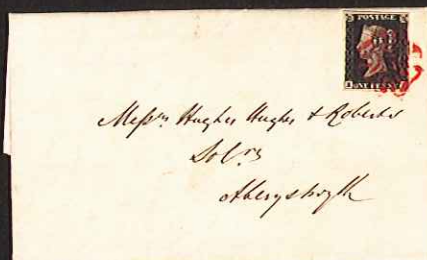 POSTAGE
ONE PENNY
Messrs Hughes Hughes & Roberts
Solrs
Aberystwyth